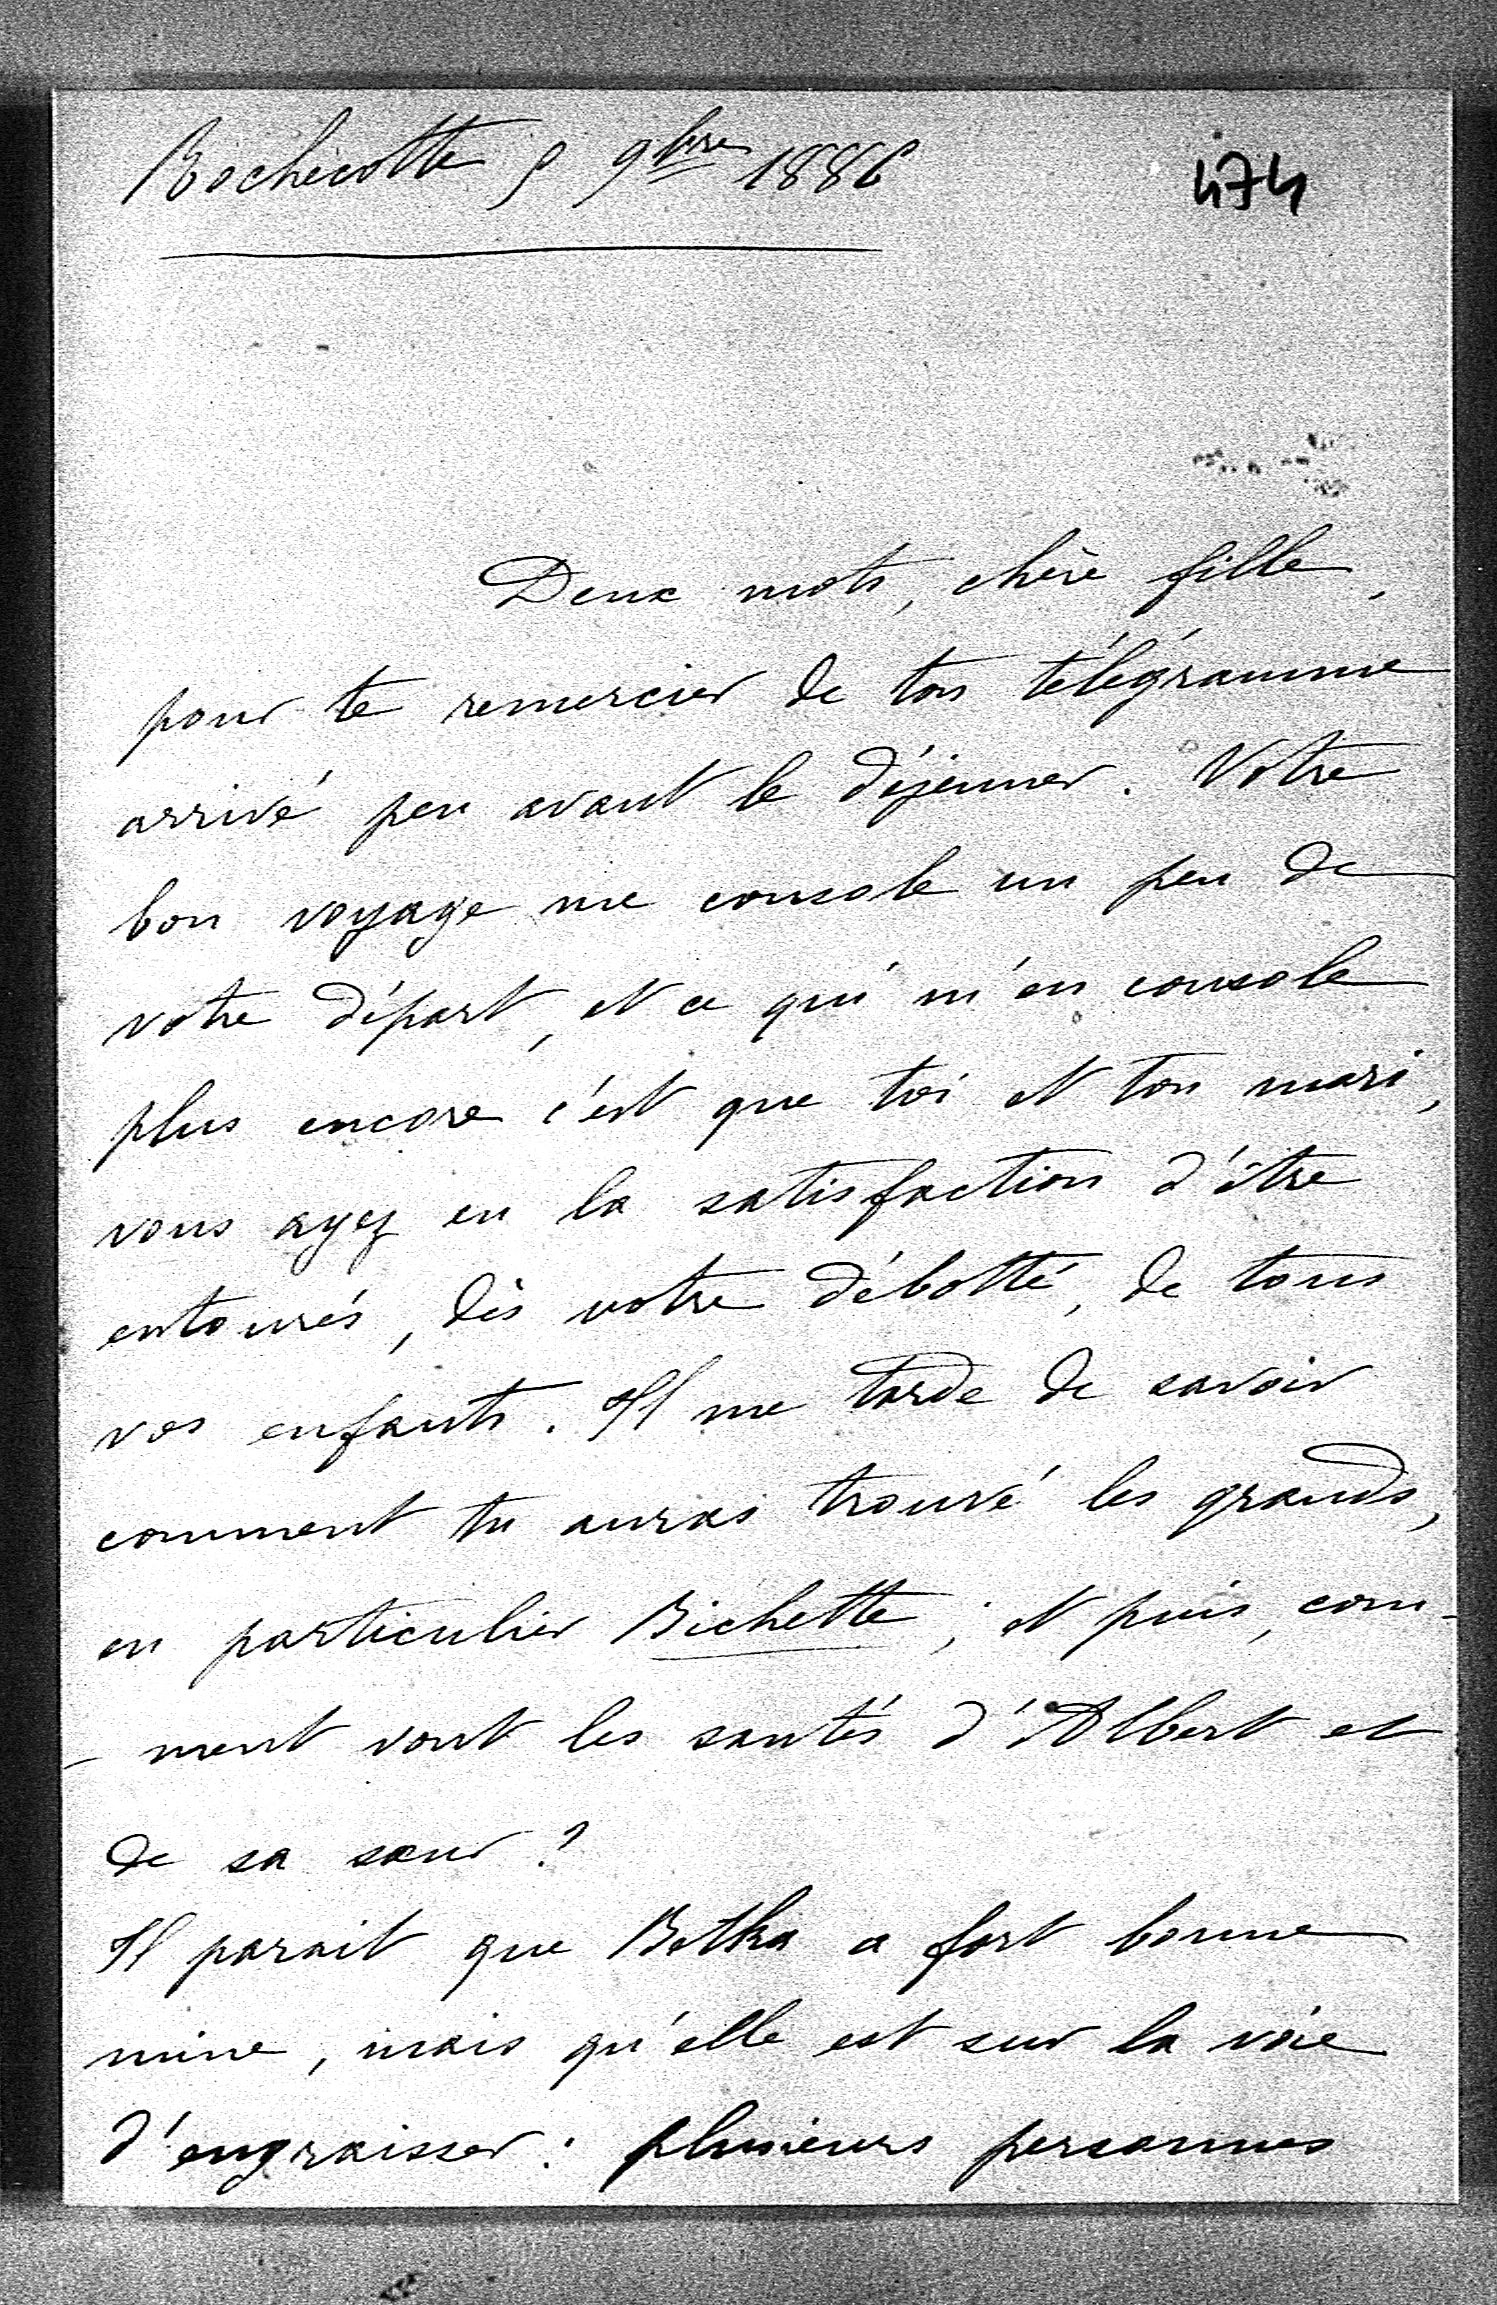 Rochecotte 5 9bre 1886
474
Deux mots, chère fille,
pour te remercier de ton télégramme
arrivé peu avant le déjeuner. Votre
bon voyage me console un peu de
votre départ, et ce qui m'en console
plus encore c'est que toi et ton mari,
vous ayez eu la satisfaction d'être
entourés, dès votre débotté, de tous
vos enfants. Il me tarde de savoir
comment tu auras trouvé les grands,
en particulier Bichette; et puis, com-
-ment vont les santés d'Albert et
de sa sœur?
Il parait que Botka a fort bonne
mine, mais qu'elle est sur la voie
d'engraisser: plusieurs personnes